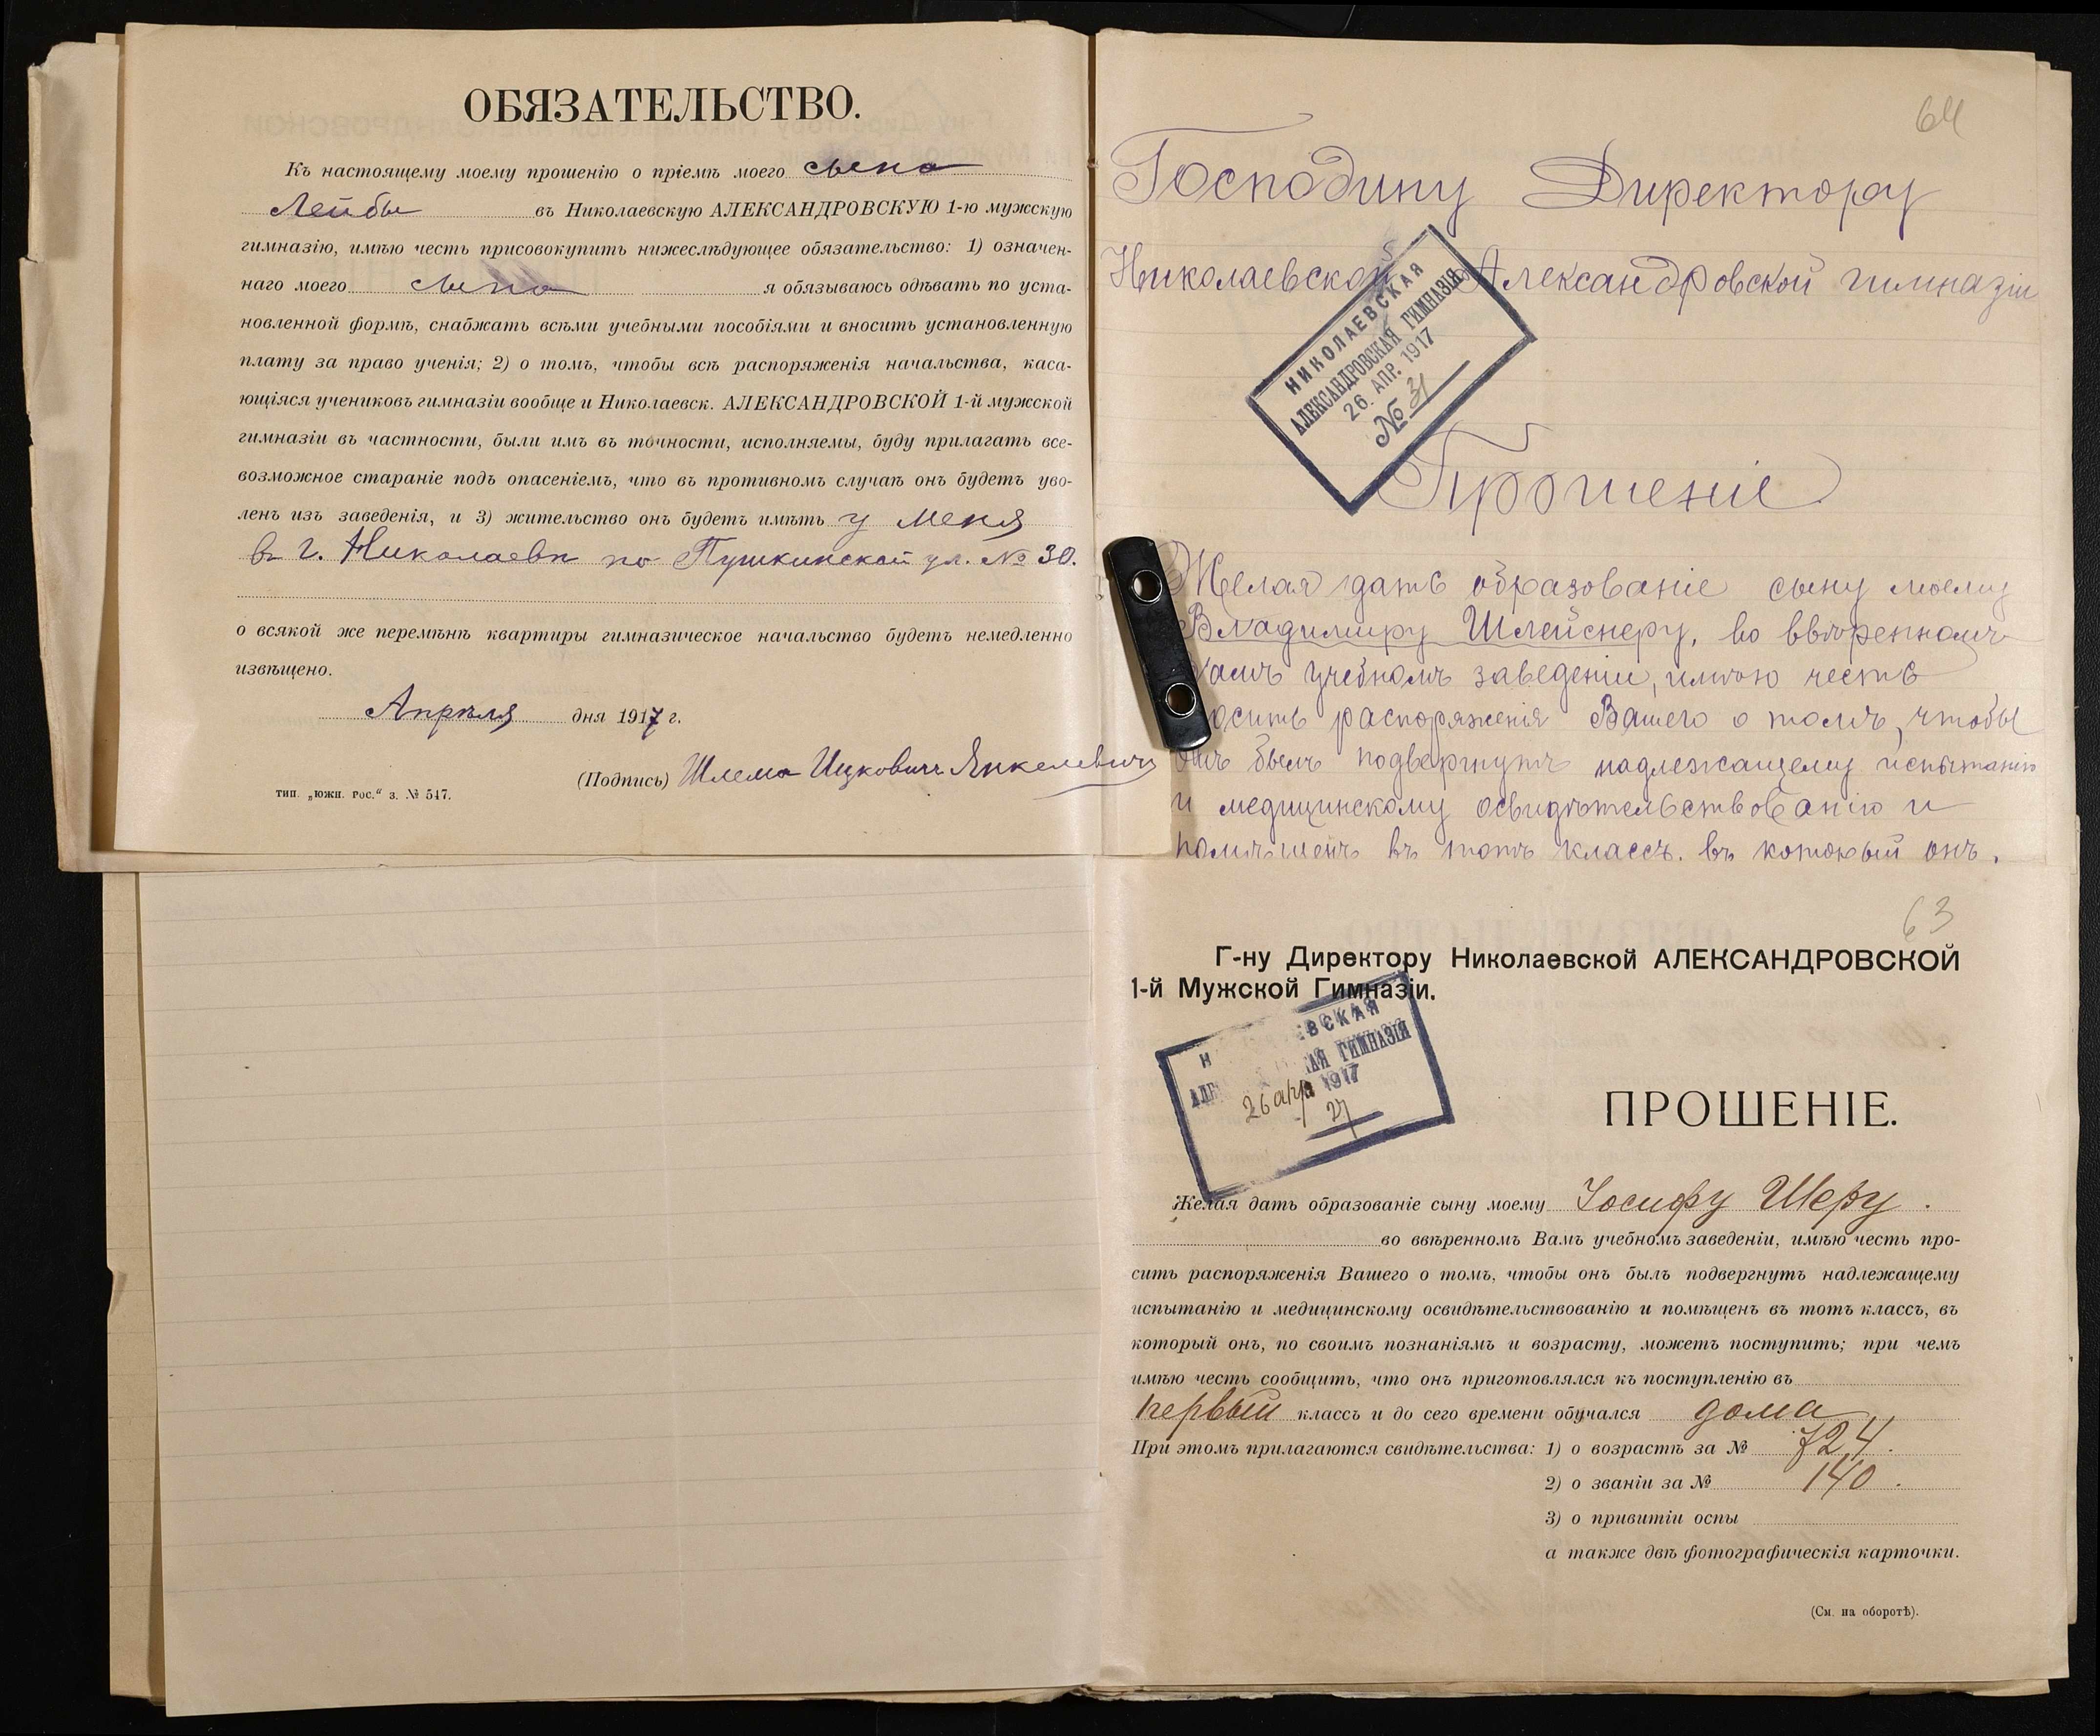 ОБЯЗАТЕЛЬСТВО.
Къ настоящему моему прошенію о пріемѣ моего сына
Лейбы въ Николаевскую АЛЕКСАНДРОВСКУЮ 1-ю мужскую
гимназію, имѣю честь присовокупить нижеслѣдующее обязательство: 1) означен-
наго моего сына я обязываюсь одѣвать по уста-
новленной формѣ, снабжать всѣми учебными пособіями и вносить установленную
плату за право ученія; 2) о томъ, чтобы всѣ распоряженія начальства, каса-
ющіяся учениковъ гимназіи вообще и Николаевск. АЛЕКСАНДРОВСКОЙ 1-й мужской
гимназіи въ частности, были имъ въ точности, исполняемы, буду прилагать все-
возможное стараніе подъ опасеніемъ, что въ противномъ случаѣ онъ будетъ уво-
ленъ изъ заведенія, и 3) жительство онъ будетъ имѣть у меня
въ г. Николаевѣ по Пушкинской ул. № 30.
о всякой же перемѣнѣ квартиры гимназическое начальство будетъ немедленно
извѣщено.
Апрѣля дня 1917 г.
(Подпись) Шлема Ицковичъ Янкелевичъ
тип. „южн. рос.“ з. № 547.
64
Господину Директору
Николаевской Александровской гимназіи
НИКОЛАЕВСКАЯ
АЛЕКСАНДРОВСКАЯ ГИМНАЗІЯ
26. АПР. 1917
№ 31
Прошеніе
Желая дать образованіе сыну моему
Владимиру Шлейснеру, во ввѣренномъ
Вамъ учебномъ заведеніи, имѣю честь
осить распоряженія Вашего о томъ, чтобы
онъ былъ подвергнутъ надлежащему испытанію
и медицинскому освидѣтельствованію и
помѣщенъ въ тотъ классъ. въ который онъ,
63
Г-ну Директору Николаевской АЛЕКСАНДРОВСКОЙ
1-й Мужской Гимназіи.
Н ЕВСКАЯ
АЛЕ КАЯ ГИМНАЗІЯ
26 апр 1917
27
ПРОШЕНІЕ.
Желая дать образованіе сыну моему Іосифу Шеру.
во ввѣренномъ Вамъ учебномъ заведеніи, имѣю честь про-
сить распоряженія Вашего о томъ, чтобы онъ былъ подвергнутъ надлежащему
испытанію и медицинскому освидѣтельствованію и помѣщенъ въ тотъ классъ, въ
который онъ, по своимъ познаніямъ и возрасту, можетъ поступить; при чемъ
имѣю честь сообщить, что онъ приготовлялся къ поступленію въ
первый классъ и до сего времени обучался дома
При этомъ прилагаются свидѣтельства: 1) о возрастѣ за № 724.
2) о званіи за № 140.
3) о привитіи оспы
а также двѣ фотографическія карточки.
(См. на оборотѣ).